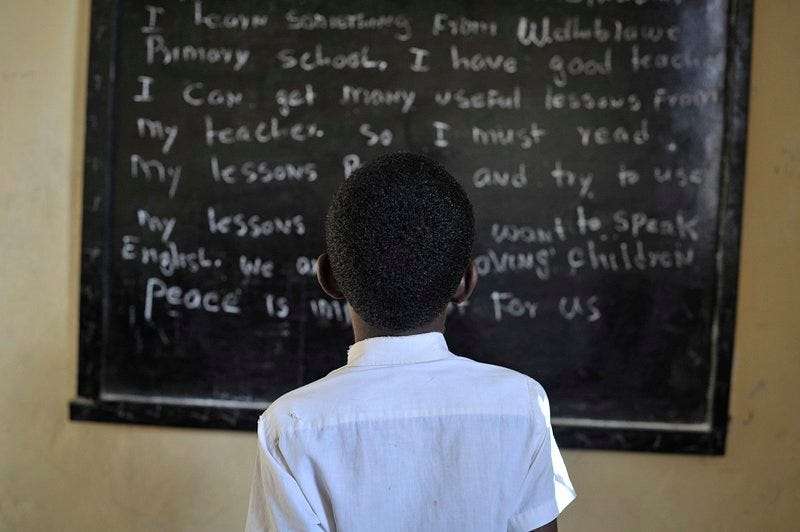 I learn something From
Primary school. I have good
I can get many useful lessons From
my teacher. so I must read
my lessons and try to use
my lessons want to speak
English. we children
peace is For us